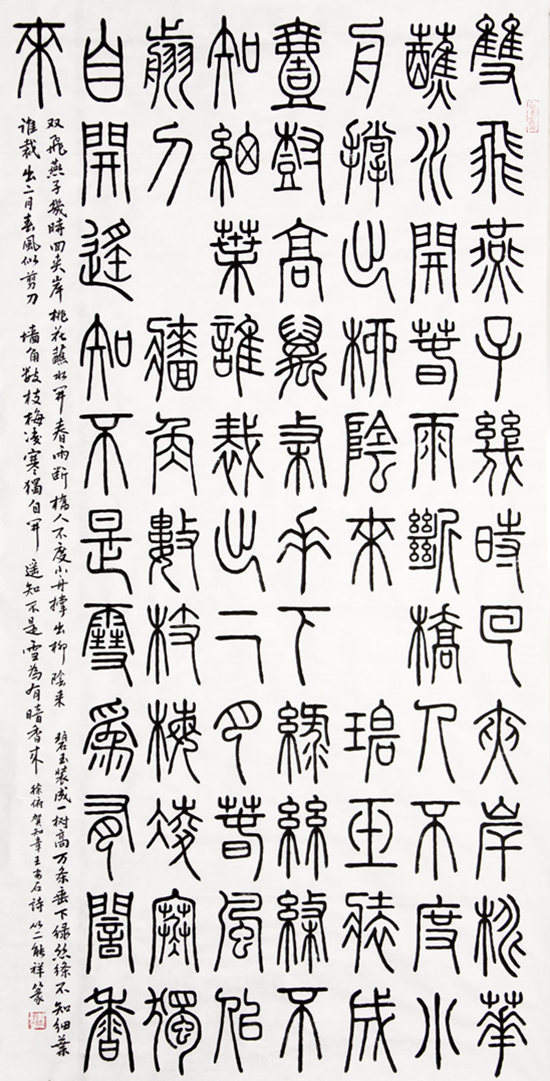 雙飛燕子幾時回夾岸桃華
蘸水開春雨斷橋人不度小
舟撐出柳陰來 碧玉裝成
壹樹高萬條垂下綠絲絛不
知細葉誰裁出二月春風似
剪刀 牆角數枝梅凌寒獨
自開遙知不是雪為有闇香
來
双飛燕子幾時回夾岸桃花蘸水開春雨断橋人不度小舟撑出柳陰来 碧玉装成一树高万条垂下绿丝绦不知细葉
谁裁出二月春風似剪刀 墙角数枝梅凌寒獨自開 遥知不是雪為有暗香来 徐俯賀知章王安石詩 能祥篆